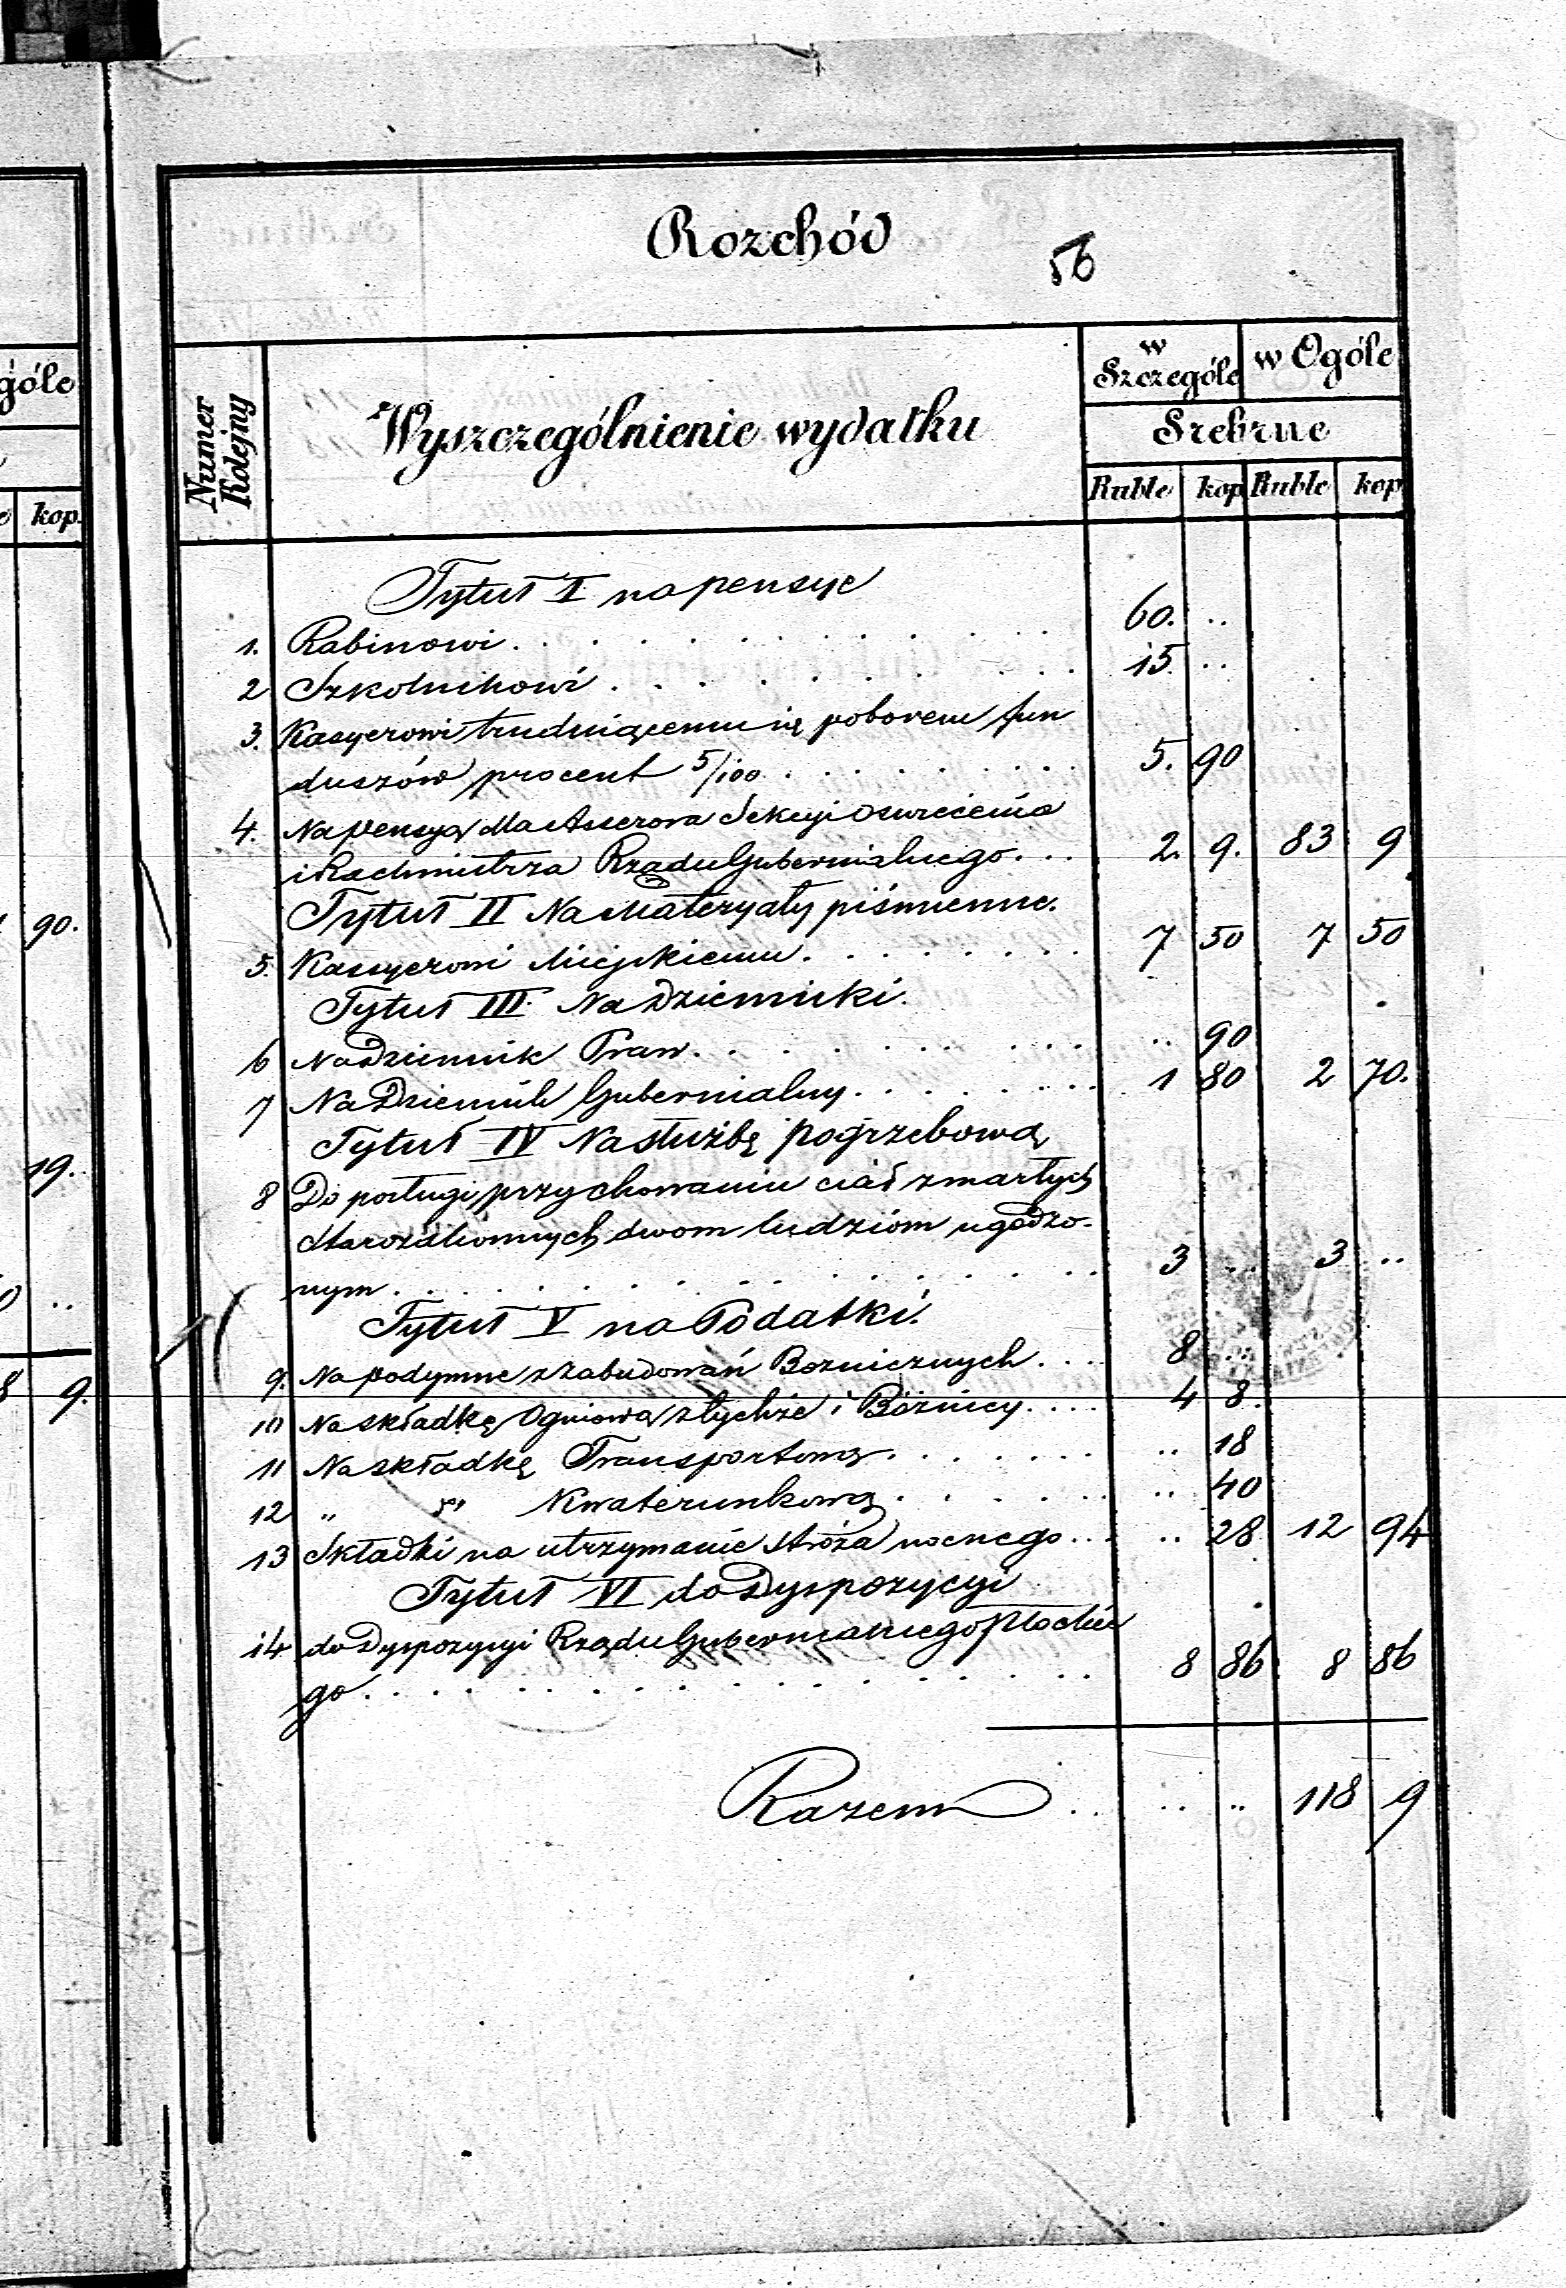 góle
kop.
90.
19.
..
8 9.
Rozchód
56
Numer Kolejny
Wyszczególnienie wydatku
w Szczególe
w Ogóle
Srebrne
Ruble kop Ruble kop
Tytuł I na pensye
1. Rabinowi . . . . . 60. ..
2 Szkolnikowi . . . . . 15. ..
3. Kassyerowi trudniącemu się poborem fun
duszów procent 5/100 . . . . . 5. 90
4. Na pensyą dla Assessora Sekcyi Oswiecenia
i Rachmistrza Rządu Gubernialnego . . . 2. 9. 83 9
Tytuł II Na Materyały piśmienne.
5. Kassyerowi Miejskiemu . . . . . 7 50 7 50
Tytuł III. Na Dzienniki.
6 Na Dziennik Praw . . . . . .. 90
7 Na Dziennik Gubernialny . . . . . 1 80 2 70.
Tytuł IV Na służbę pogrzebową
8 Do posługi przy chowaniu ciał zmarłych
Starozakonnych dwom ludziom ugodzo-
nym . . . . . 3 .. 3 ..
Tytuł V na Podatki.
9. Na podymne z zabudowań Bożnicznych . . . 8 ..
10 Na składkę Ogniową z tychże i Bóżnicy . . . . 4 8.
11 Na składkę Transportową . . . . . .. 18
12 " " Kwaterunkową . . . . . .. 40
13 Składki na utrzymanie stróża nocnego . . . .. 28 12 94
Tytuł VI do Dyspozycyi
14 do Dyspozycyi Rządu Gubernialnego Płockie
go . . . . . 8 86 8 86
Razem . . .. .. 118 9